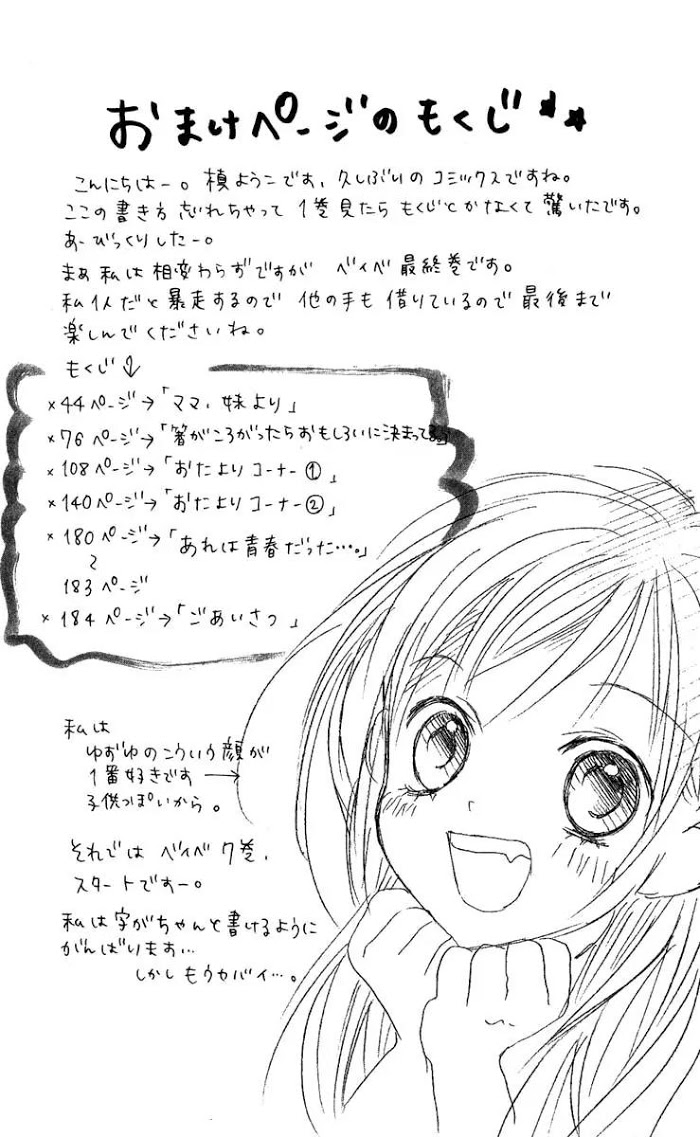 おまけページのもくじ**
こんにちはー。槙ようこです、久しぶりのコミックスですね。
ここの書き方忘れちゃって1巻見たらもくじとかなくて驚いたです。
あーびっくりしたー。
まぁ私は相変わらずですがベイベ最終巻です。
私1人だと暴走するので他の手も借りているので最後まで
楽しんでくださいね。
もくじ↓
×44ページ→「ママ、妹より」
×76ページ→「箸がころがったらおもしろいに決まってる」
×108ページ→「おたよりコーナー①」
×140ページ→「おたよりコーナー②」
×180ページ→「あれは青春だった…。」
〜
183ページ
×184ページ→「ごあいさつ」
私は
ゆずゆのこういう顔が
1番好きです→
子供っぽいから。
それではベイベ7巻、
スタートですー。
私は字がちゃんと書けるように
がんばります…
しかしもうヤバイ…。